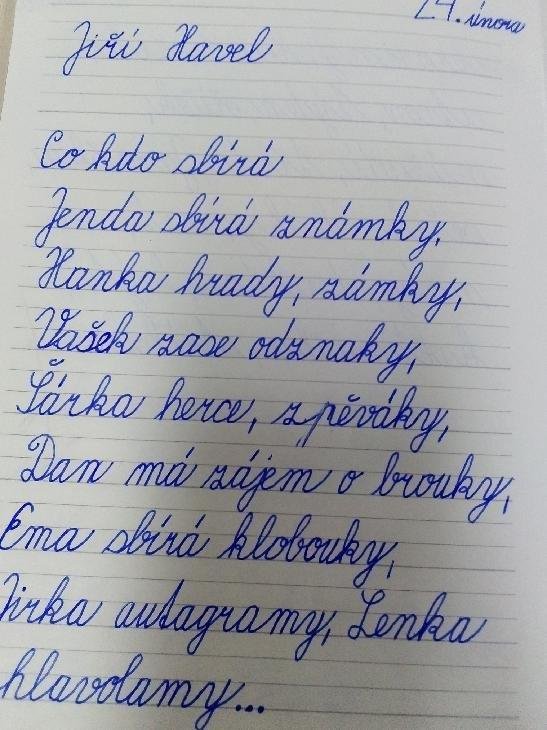 24. února
Jiří Havel
Co kdo sbírá
Jenda sbírá známky,
Hanka hrady, zámky,
Vašek zase odznaky,
Šárka herce, zpěváky,
Dan má zájem o brouky,
Ema sbírá klobouky,
Jirka autagramy, Lenka
hlavolamy...